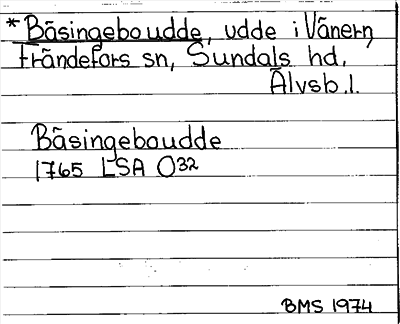 *Bäsingeboudde, udde i Vänern,
Frändefors sn, Sundals hd,
Älvsb. l.
Bäsingeboudde
1765 LSA O32
BMS 1974